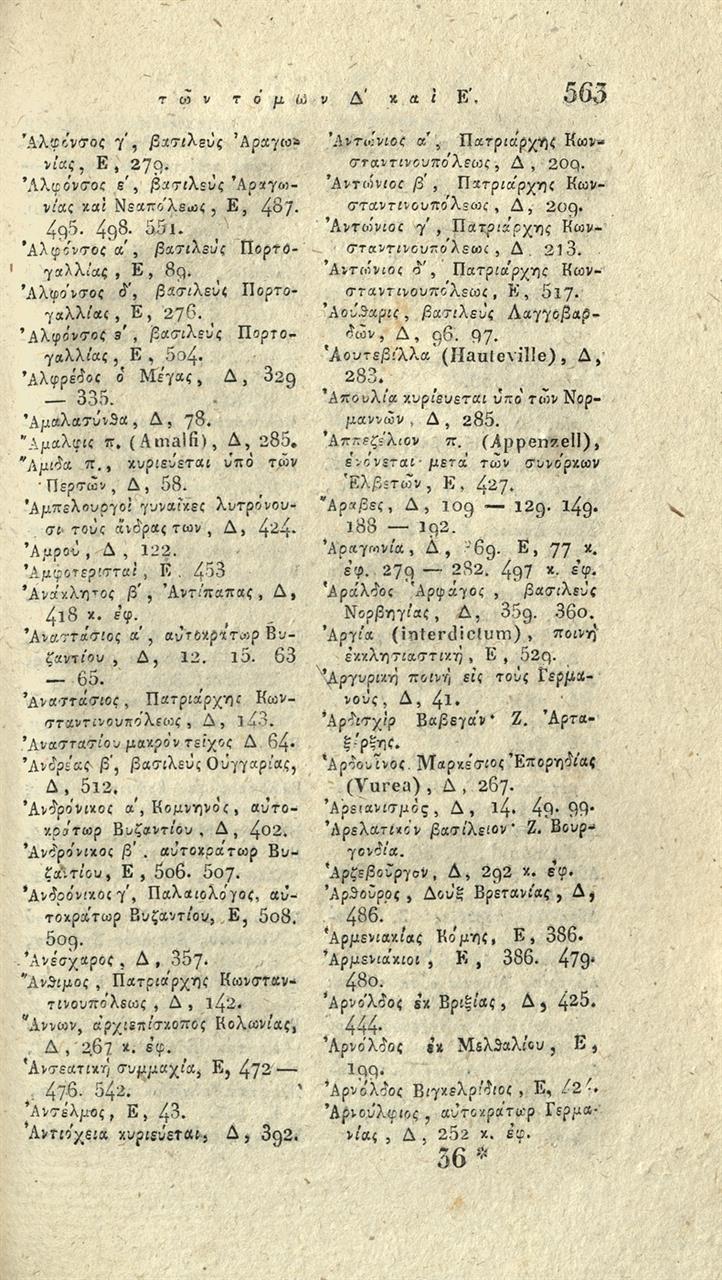 τῶν τόμων Δ΄ καὶ Ε΄. 563
Ἀλφόνσος γ΄, βασιλεὺς Ἀραγω-
νίας, Ε, 279.
Ἀλφόνσος ε΄, βασιλεὺς Ἀραγω-
νίας καὶ Νεαπόλεως, Ε, 487.
495. 498. 551.
Ἀλφόνσος α΄, βασιλεὺς Πορτο-
γαλλίας, Ε, 89.
Ἀλφόνσος δ΄, βασιλεὺς Πορτο-
γαλλίας, Ε, 276.
Ἀλφόνσος ε΄, βασιλεὺς Πορτο-
γαλλίας, Ε, 504.
Ἀλφρέδος ὁ Μέγας, Δ, 329
— 335.
Ἀμαλασύνθα, Δ, 78.
Ἄμαλφις π. (Amalfi), Δ, 285.
Ἄμιδα π., κυριεύεται ὑπὸ τῶν
Περσῶν, Δ, 58.
Ἀμπελουργοὶ γυναῖκες λυτρόνου-
σι τοὺς ἄνδρας των, Δ, 424.
Ἀμρού, Δ, 122.
Ἀμφοτερισταὶ, Ε. 453
Ἀνάκλητος β΄, Ἀντίπαπας, Δ,
418 κ. ἐφ.
Ἀναστάσιος α΄, αὐτοκράτωρ Βυ-
ζαντίου, Δ, 12. 15. 63
— 65.
Ἀναστάσιος, Πατριάρχης Κων-
σταντινουπόλεως, Δ, 143.
Ἀναστασίου μακρὸν τεῖχος Δ 64.
Ἀνδρέας β΄, βασιλεὺς Οὑγγαρίας,
Δ, 512.
Ἀνδρόνικος α΄, Κομνηνὸς, αὐτο-
κράτωρ Βυζαντίου, Δ, 402.
Ἀνδρόνικος β΄. αὐτοκράτωρ Βυ-
ζαντίου, Ε, 506. 507.
Ἀνδρόνικος γ΄, Παλαιολόγος, αὐ-
τοκράτωρ Βυζαντίου, Ε, 508.
509.
Ἀνέσχαρος, Δ, 357.
Ἄνθιμος, Πατριάρχης Κωνσταν-
τινουπόλεως, Δ, 142.
Ἄννων, ἀρχιεπίσκοπος Κολωνίας,
Δ, 267 κ. ἐφ.
Ἀνσεατικὴ συμμαχία, Ε, 472 —
476. 542.
Ἀνσέλμος, Ε, 43.
Ἀντιόχεια κυριεύεται, Δ, 392.
Ἀντώνιος α΄, Πατριάρχης Κων-
σταντινουπόλεως, Δ, 209.
Ἀντώνιος β΄, Πατριάρχης Κων-
σταντινουπόλεως, Δ, 209.
Ἀντώνιος γ΄, Πατριάρχης Κων-
σταντινουπόλεως, Δ 213.
Ἀντώνιος δ΄, Πατριάρχης Κων-
σταντινουπόλεως, Ε, 517.
Ἀούθαρις, βασιλεὺς Λαγγοβαρ-
δῶν, Δ, 96. 97.
Ἀουτεβίλλα (Hauteville), Δ,
283.
Ἀπουλία κυριεύεται ὑπὸ τῶν Νορ-
μαννῶν, Δ, 285.
Ἀππεζέλιον π. (Appenzell),
ἑνόνεται μετὰ τῶν συνόρκων
Ἑλβετῶν, Ε, 427.
Ἄραβες, Δ, 109 — 129. 149.
188 — 192.
Ἀραγωνία, Δ, 69. Ε, 77 κ.
ἐφ. 279 — 282. 497 κ. ἐφ.
Ἀράλδος Ἀρφάγος, βασιλεὺς
Νορβηγίας, Δ, 359. 360.
Ἀργία (interdictum), ποινὴ
ἐκκλησιαστικὴ, Ε, 529.
Ἀργυρικὴ ποινὴ εἰς τοὺς Γερμα-
νοὺς, Δ, 41.
Ἀρδισχὶρ Βαβεγάν· Ζ. Ἀρτα-
ξέρξης.
Ἀρδουῖνος Μαρκέσιος Ἐπορηδίας
(Yurea), Δ, 267.
Ἀρειανισμὸς, Δ, 14. 49. 99.
Ἀρελατικὸν βασίλειον· Ζ. Βουρ-
γονδία.
Ἀρζεβοῦργον, Δ, 292 κ. ἐφ.
Ἀρθοῦρος, Δοὺξ Βρετανίας, Δ,
486.
Ἀρμενιακίας Κόμης, Ε, 386.
Ἀρμενιάκιοι, Ε, 386. 479.
480.
Ἀρνόλδος ἐκ Βριξίας, Δ, 425.
444.
Ἀρνόλδος ἐκ Μελθαλίου, Ε,
199.
Ἀρνόλδος Βιγκελρίδιος, Ε,
Ἀρνούλφιος, αὐτοκράτωρ Γερμα-
νίας, Δ, 252 κ. ἐφ.
36 *